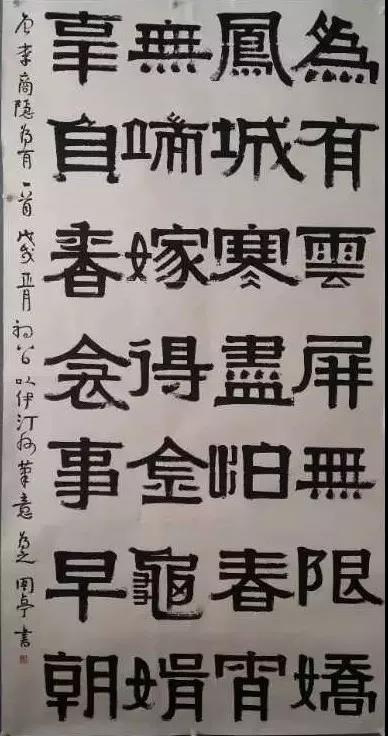 為有雲屏無限嬌
鳳城寒盡怕春宵
無端嫁得金龜婿
辜自香衾事早朝
李商隱為有一首 戊戌正月初 以伊汀州筆意為之 亭書